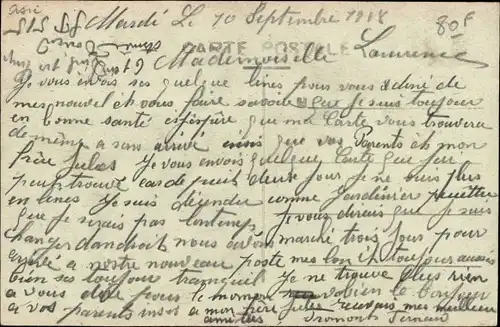 Mardi Le 10 Septembre 1918
80F
CARTE POSTALE
Mademoiselle Laurence
Je vous envois ses quelque lines pour vous donné de
mes nouvel et vous faire savoire que je suis toujours
en bonne santé esspère que ma Carte vous trouvera
de même a son arrivé insis que vos Parents et mon
frère Jules Je vous envois quelque Carte que j'ai
peut trouvé car depuit deux jour je ne suis plus
en lines Je suis détendu comme Jardinier
que je serais pas lontemps je vous dirais que je suis
changer dandroit nous avons marché trois jour pour
arrivé a notre nouveau poste mes toujour aussi
bien ses toujour tranquil Je ne trouve plus rien
a vous dire pour le moment bien le bonjour
a vos parents insis a mon frère Jules recevais mes meilleur
amitiés